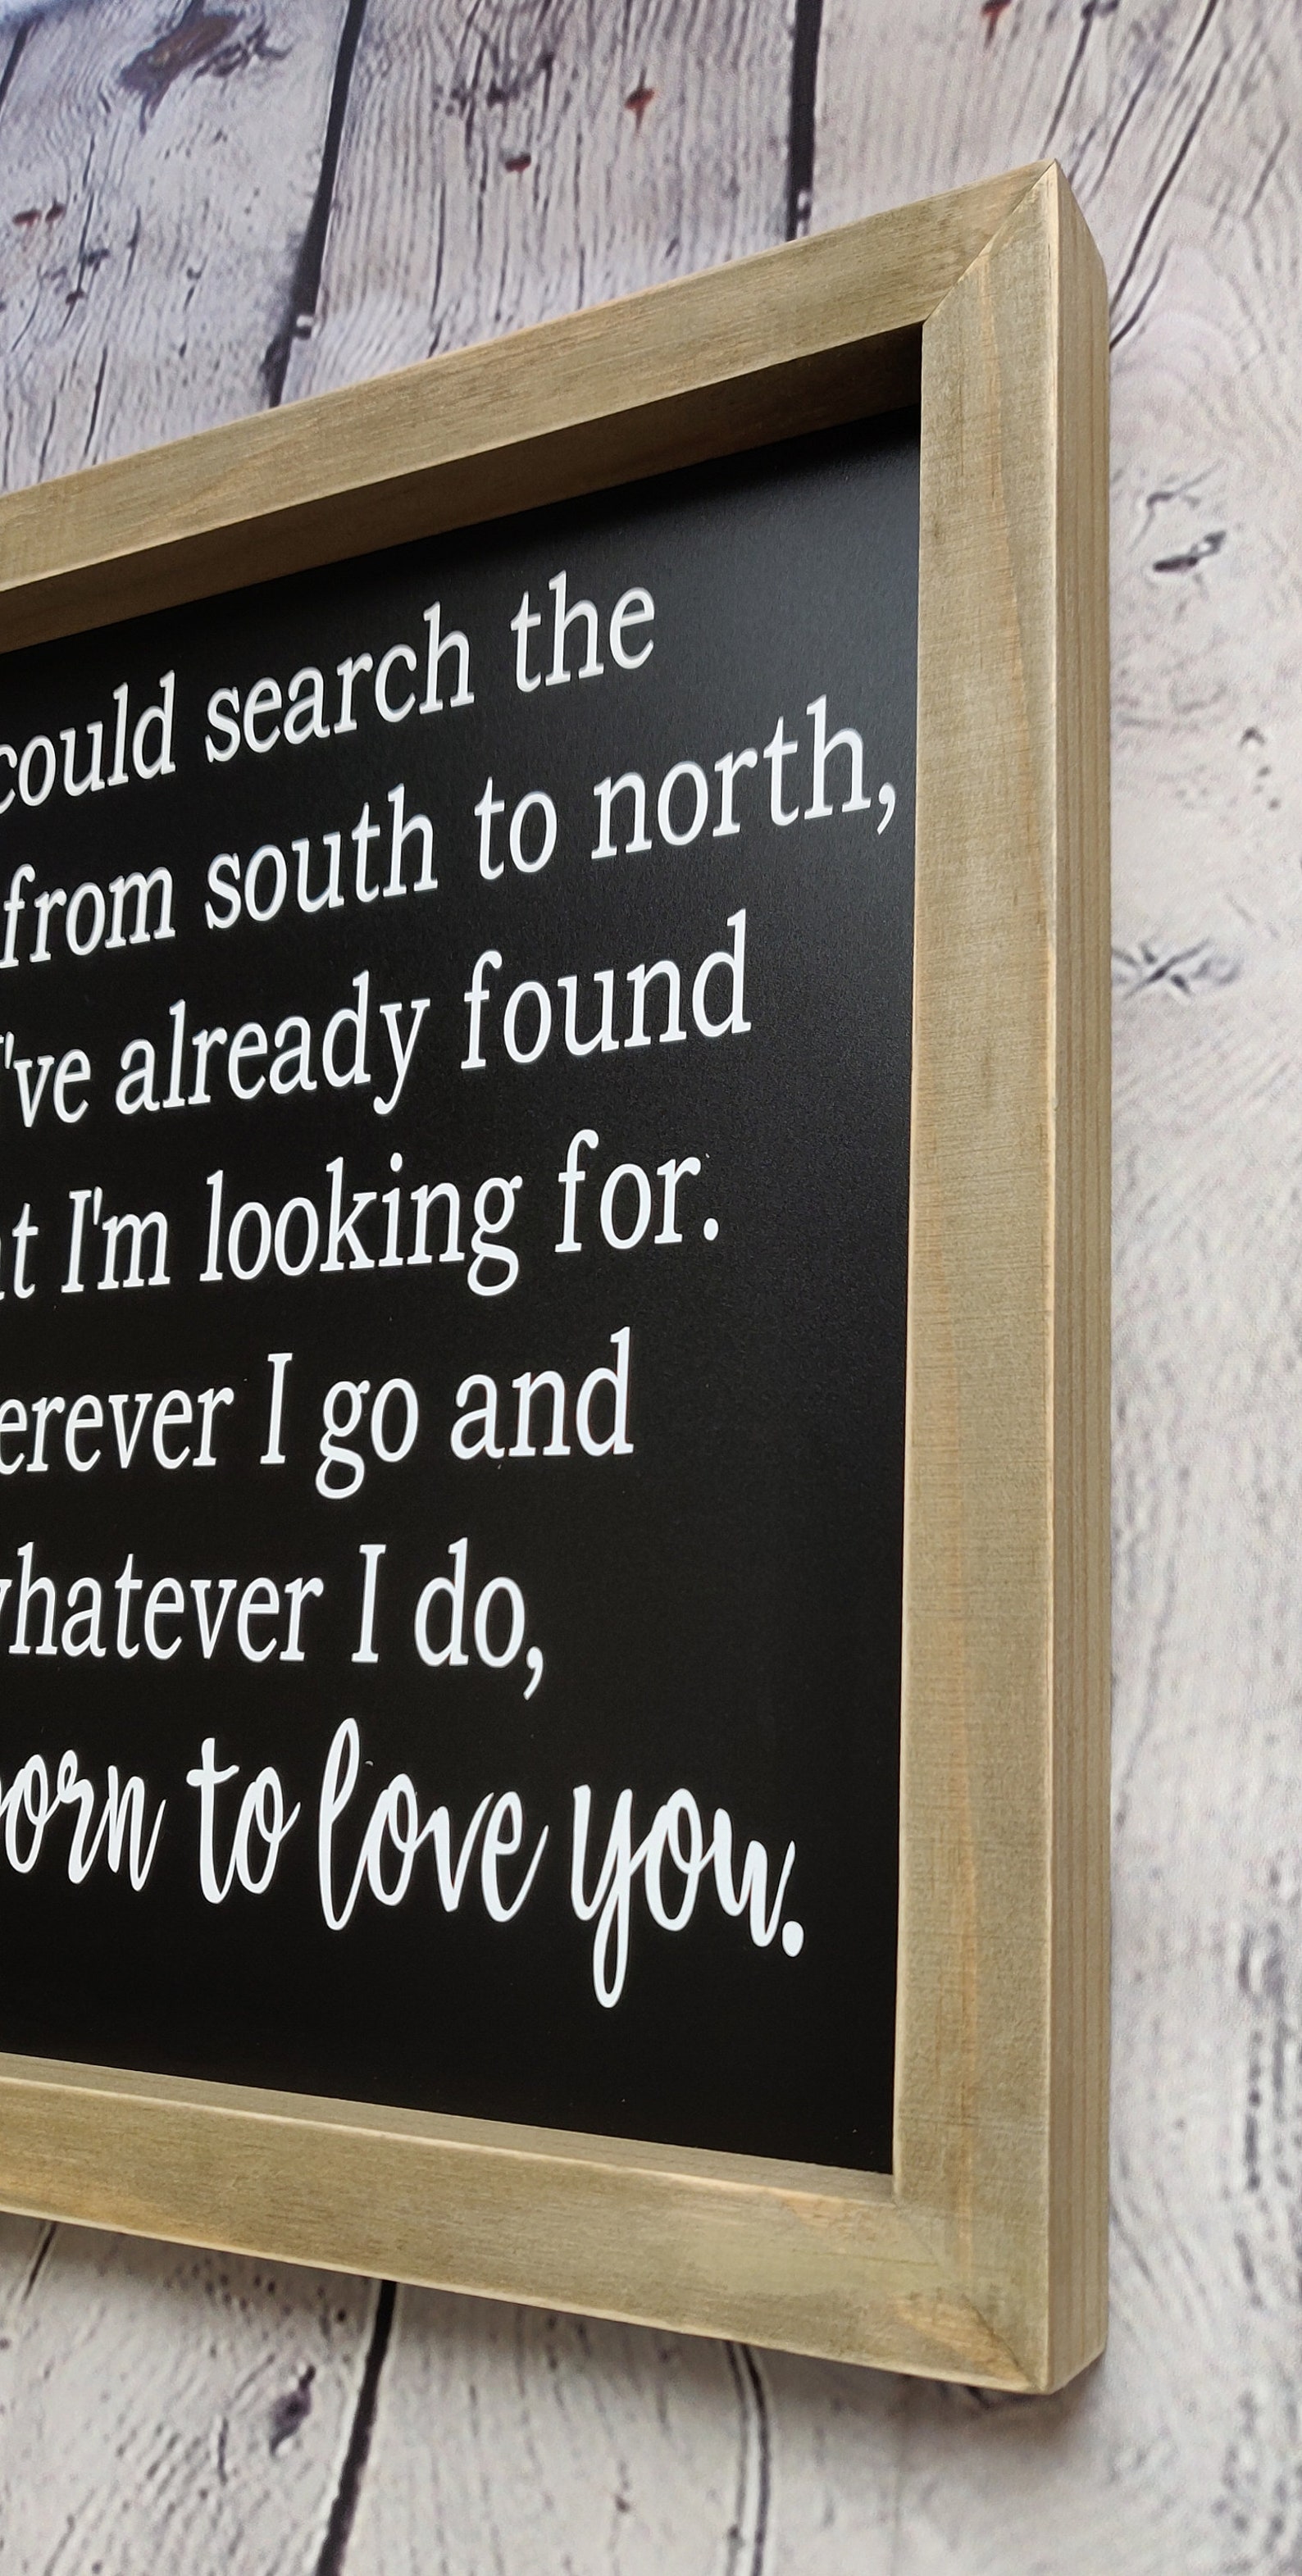 could search the
from south to north,
I've already found
I'm looking for.
I go and
whatever I do,
born to love you.